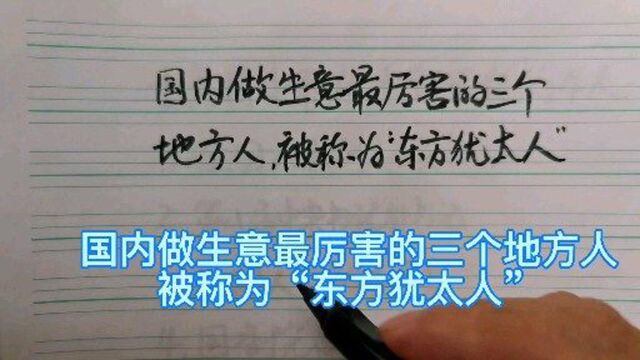 国内做生意最厉害的三个
地方人,被称为“东方犹太人”
国内做生意最厉害的三个地方人
被称为“东方犹太人”